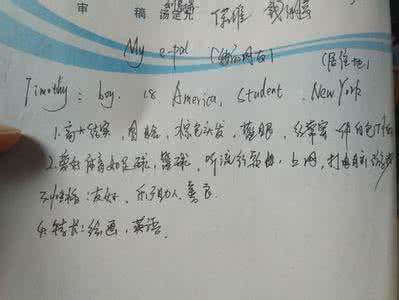 审 稿
My e-pal (给的网友)
(居住地)
Timothy: boy. 18 America, student. New York
1.高大结实，圆脸，棕色头发，蓝眼，经常穿
2.爱好体育如足球，篮球，听流行歌曲，上网，打电脑游戏
3.性格：友好，乐于助人，善良
4.特长：绘画，英语。